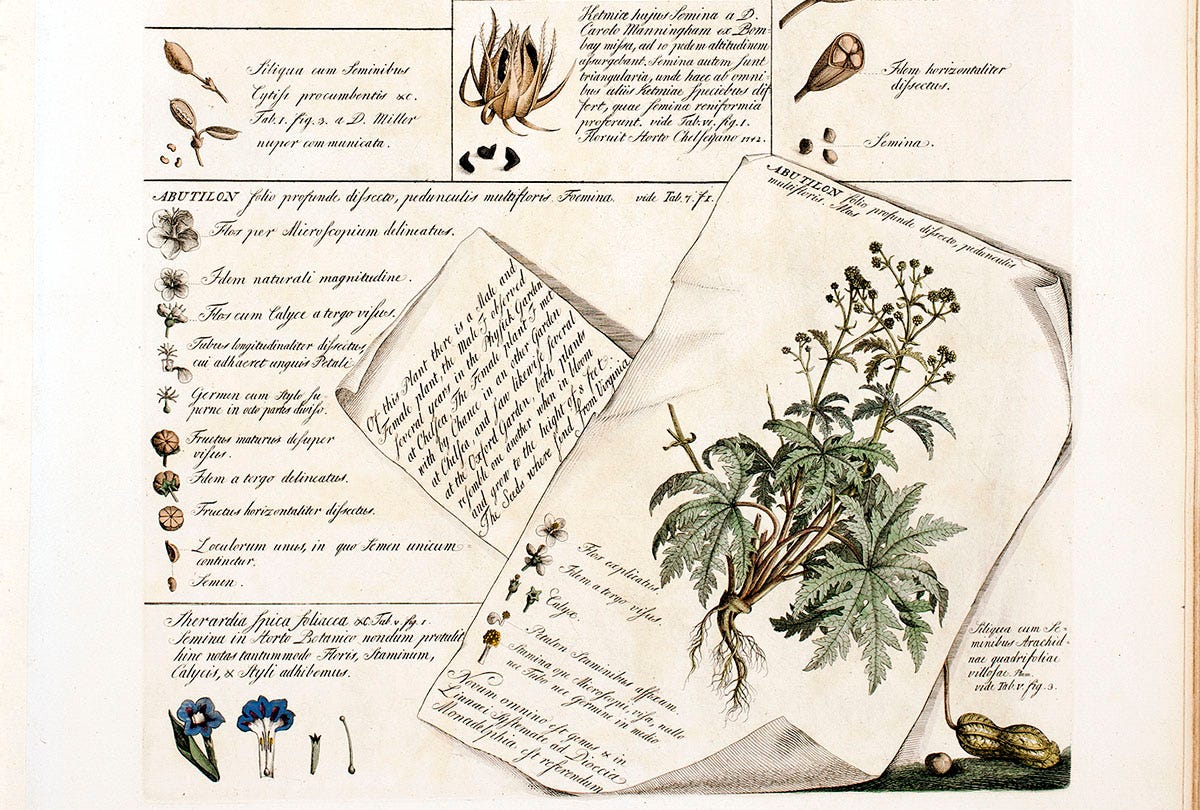 Siliqua cum Seminibus
Cytisi procumbentis &c.
Tab. 1. fig. 3. a D. Miller
nuper communicata.
Ketmiæ hujus Semina a D.
Carolo Manningham ex Bom-
bay missa, ad 10 pedem altitudinem
assurgebant. Semina autem sunt
triangularia, unde haec ab omni-
bus aliis Ketmiæ speciebus dif
fert, quae semina reniformia
proferunt. vide Tab. vi. fig. 1.
Floruit Horto Chelsegano 1742.
Idem horizontaliter
dissectus.
Semina.
ABUTILON folio profunde dissecto, pedunculis multifloris. Foemina. vide Tab. 7. f1.
Flos per Microscopium delineatus.
Idem naturali magnitudine.
Flos cum Calyce a tergo visus.
Tubus longitudinaliter dissectus,
cui adhaeret unguis Petali
Germen cum Stylo su-
perne in octo partes diviso.
Fructus maturus desuper
visus.
Idem a tergo delineatus.
Fructus horizontaliter dissectus.
Loculorum unus, in quo Semen unicum
continetur.
Semen.
Of this Plant there is a Male and
Female plant, the Male I observed
several years in the Physick Garden
at Chelsea, The Female plant I met
with by Chance in an other Garden
at Chelsea, and saw likewise several
at the Oxford Garden, both plants
resemble one another when in bloom
and grow to the height of 8 feet.
The Seeds where send from Virginia
ABUTILON folio profunde dissecto, pedunculis
multifloris. Mas
Flos explicatus.
Idem a tergo visus.
Calyx.
Paulon Staminibus affixum.
Stamina ope Microscopii visa, nullo
nec Tubo nec germine in medio.
Novum omnino est genus & in
Linnaei Systemate ad Dioecia
Monadelphia est referendum
Sherardia spica foliacea &c. Tab. v. fig. 1.
Semina in Horto Botanico nondum protulit
hinc notas tantummodo Floris, Staminum,
Calycis, & Styli adhibemus.
Siliqua cum Se-
minibus Arachid-
nae quadrifoliae
villosae. Plum.
vide Tab. v. fig. 3.